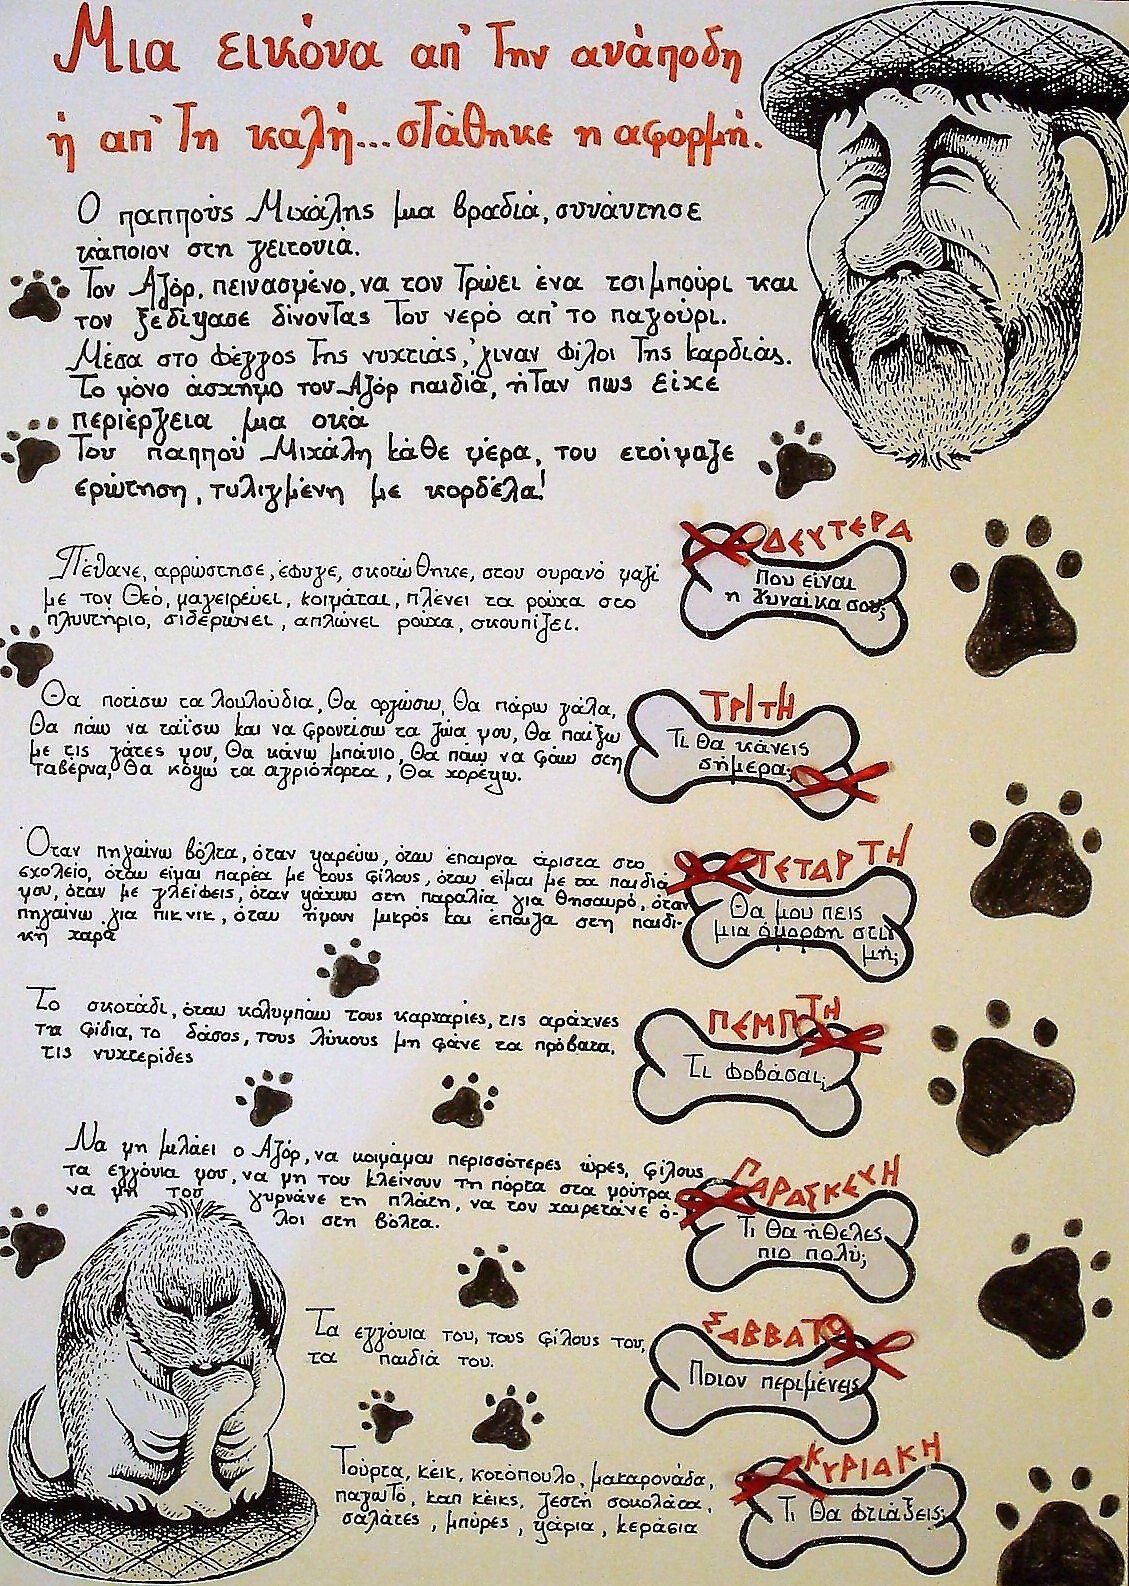 Μια εικόνα απ' την ανάποδη
ή απ' τη καλή...στάθηκε η αφορμή.
Ο παππούς Μιχάλης μια βραδιά, συνάντησε
κάποιον στη γειτονιά.
Τον Αζόρ, πεινασμένο, να τον τρώει ένα τσιμπούρι και
τον ξεδίψασε δίνοντας του νερό απ' το παγούρι.
Μέσα στο φέγγος της νυχτιάς, 'γιναν φίλοι της καρδιάς.
Το μόνο άσχημο του Αζόρ παιδιά, ήταν πως είχε
περιέργεια μια οκά
Του παππού Μιχάλη κάθε μέρα, του ετοίμαζε
ερώτηση, τυλιγμένη με κορδέλα!
ΔΕΥΤΕΡΑ
Που είναι
η γυναίκα σου;
Πέθανε, αρρώστησε, έφυγε, σκοτώθηκε, στον ουρανό μαζί
με τον Θεό, μαγειρεύει, κοιμάται, πλένει τα ρούχα στο
πλυντήριο, σιδερώνει, απλώνει ρούχα, σκουπίζει.
ΤΡΙΤΗ
Τι θα κάνεις
σήμερα;
Θα ποτίσω τα λουλούδια, θα οργώσω, θα πάρω γάλα,
θα πάω να ταΐσω και να φροντίσω τα ζώα μου, θα παίξω
με τις γάτες μου, θα κάνω μπάνιο, θα πάω να φάω στη
ταβέρνα, θα κόψω τα αγριόχορτα, θα χορέψω.
ΤΕΤΑΡΤΗ
Θα μου πεις
μια όμορφη στιγ
μή;
Όταν πηγαίνω βόλτα, όταν ψαρεύω, όταν έπαιρνα άριστα στο
σχολείο, όταν είμαι παρέα με τους φίλους, όταν είμαι με τα παιδιά
μου, όταν με γλείφεις, όταν ψάχνω στη παραλία για θησαυρό, όταν
πηγαίνω για πικνικ, όταν ήμουν μικρός και έπαιζα στη παιδι-
κή χαρά
ΠΕΜΠΤΗ
Τι φοβάσαι;
Το σκοτάδι, όταν κολυμπάω τους καρχαρίες, τις αράχνες
τα φίδια, το δάσος, τους λύκους μη φάνε τα πρόβατα,
τις νυχτερίδες
ΠΑΡΑΣΚΕΥΗ
Τι θα ήθελες
πιο πολύ;
Να μη μιλάει ο Αζόρ, να κοιμάμαι περισσότερες ώρες, φίλους
τα εγγόνια μου, να μη του κλείνουν τη πόρτα στα μούτρα,
να μη του γυρνάνε τη πλάτη, να τον χαιρετάνε ό-
λοι στη βόλτα.
ΣΑΒΒΑΤΟ
Ποιον περιμένεις
Τα εγγόνια του, τους φίλους του,
τα παιδιά του.
ΚΥΡΙΑΚΗ
Τι θα φτιάξεις;
Τούρτα, κέικ, κοτόπουλο, μακαρονάδα,
παγωτό, καπ κέικς, ζεστή σοκολάτα,
σαλάτες, μπύρες, ψάρια, κεράσια